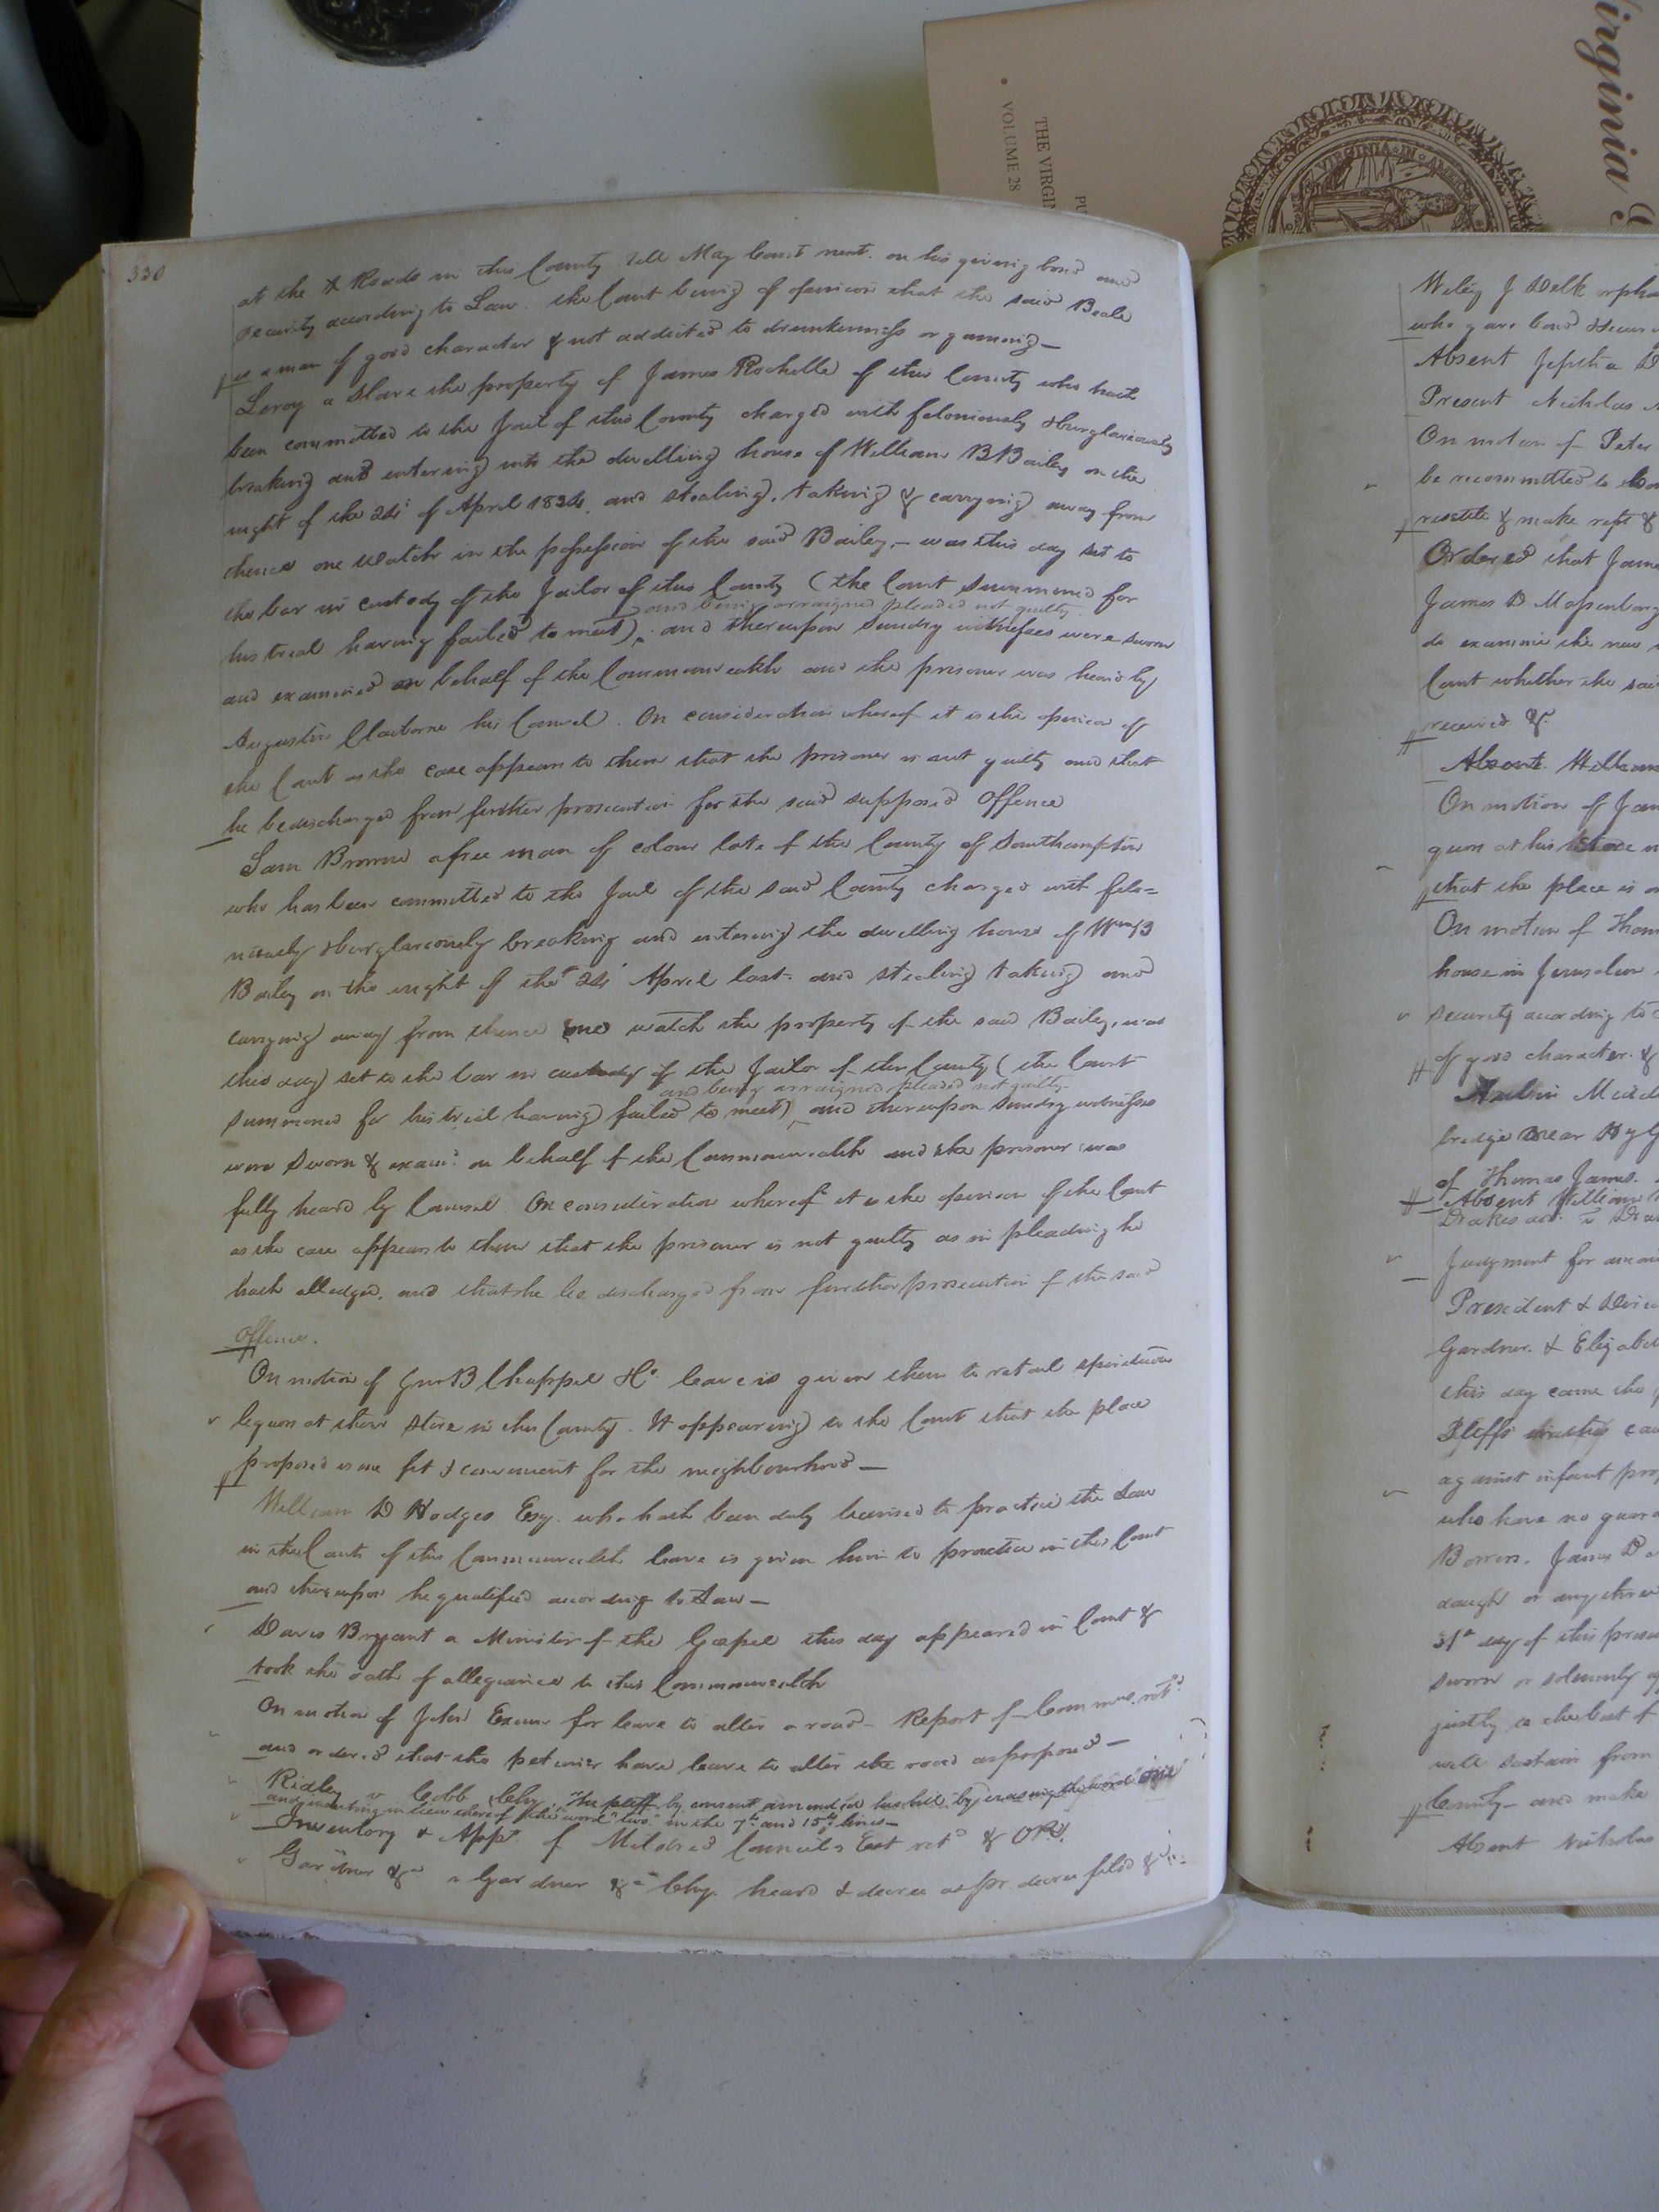 Virginia
THE VIRGIN
VOLUME 28
PU
VIRGINIA
330
at the X Roads in this County till May Court next. on his giving bond and
security according to Law. the Court being of opinion that the said Beale
is a man of good character & not addicted to drunkenness or gaming—
Leroy a slave the property of James Rochelle of this County who hath
been committed to the Jail of this County charged with feloniously & burglariously
breaking and entering into the dwelling house of William B Bailey on the
night of the 24th of April 1834. and stealing, taking & carrying away from
thence one watch in the possession of the said Bailey,— was this day set to
the bar in custody of the Jailor of this County (the Court summoned for
and being arraigned pleaded not guilty.
his trial having failed to meet)‸ and thereupon Sundry witnesses were sworn
and examined on behalf of the Commonwealth and the prisoner was heard by
Augustin Claiborne his Counsel. On consideration whereof it is the opinion of
the Court as the case appears to them that the prisoner is not guilty and that
he be discharged from further prosecution for the said supposed Offence
Sam Browne a free man of colour late of the County of Southampton
who has been committed to the Jail of the said County charged with felo=
niously & burglariously breaking and entering the dwelling house of Wm B
Bailey on the night of the 24 April last. and stealing taking and
carrying away from thence one watch the property of the said Bailey, was
this day set to the bar in custody of the Jailor of this County (the Court
and being arraigned pleaded not guilty.
summoned for his trial having failed to meet)‸ and thereupon sundry witnesses
were sworn & examd. on behalf of the Commonwealth and the prisoner was
fully heard by Counsel. On consideration whereof it is the opinion of the Court
as the case appears to them that the prisoner is not guilty as in pleading he
hath alledged. and that he be discharged from further prosecution of the said
Offence.
On motion of Jno B Chappel & Co. leave is given them to retail spirituous
liquors at their Store in this County. It appearing to the Court that the place
proposed is one fit & convenient for the neighbourhood—
William D Hodges Esq. who hath been duly licensed to practice the Law
in the Courts of this Commonwealth leave is given him to practice in this Court
and thereupon he qualified according to Law—
Davis Bryant a Minister of the Gospel this day appeared in Court &
took the oath of allegiance to this Commonwealth
On motion of John Exum for leave to alter a road— Report of Commrs. retd
and ordered that the petinier have leave to alter the road as proposed—
Ridley v Cobb Chy. The pltff by consent amended his bill by erasing the word
and inserting in lieu thereof the word "two" in the 7th and 15th lines—
Inventory & Appt. of Mildred Councils Est retd & OR.
Gardner &c v Gardner &c Chy. heard & decree as pr. decree filed &c
Wiley J Delk orpha
who gave bond & secur
Absent Jeptha D
Present Nicholas
On motion of Peter
be recommitted to
& make rept &
Ordered that Jam
James D Massenburg
do examine the new
Court whether the sai
received &c
Absent William
On motion of Jam
quors at his Store
that the place is
On motion of Thom
house in Jerusalem
security according to
of good character. &
bridge near
of Thomas James.
Absent William
Judgment for amou
President & Direc
Gardner. & Elizabe
this day came the
Pltffs
against infant
who have no guard
James D
daught or any
31st day of this prese
sworn or solemnly
justly to the best of
will sustain from
County— and make
Absent Nicholas